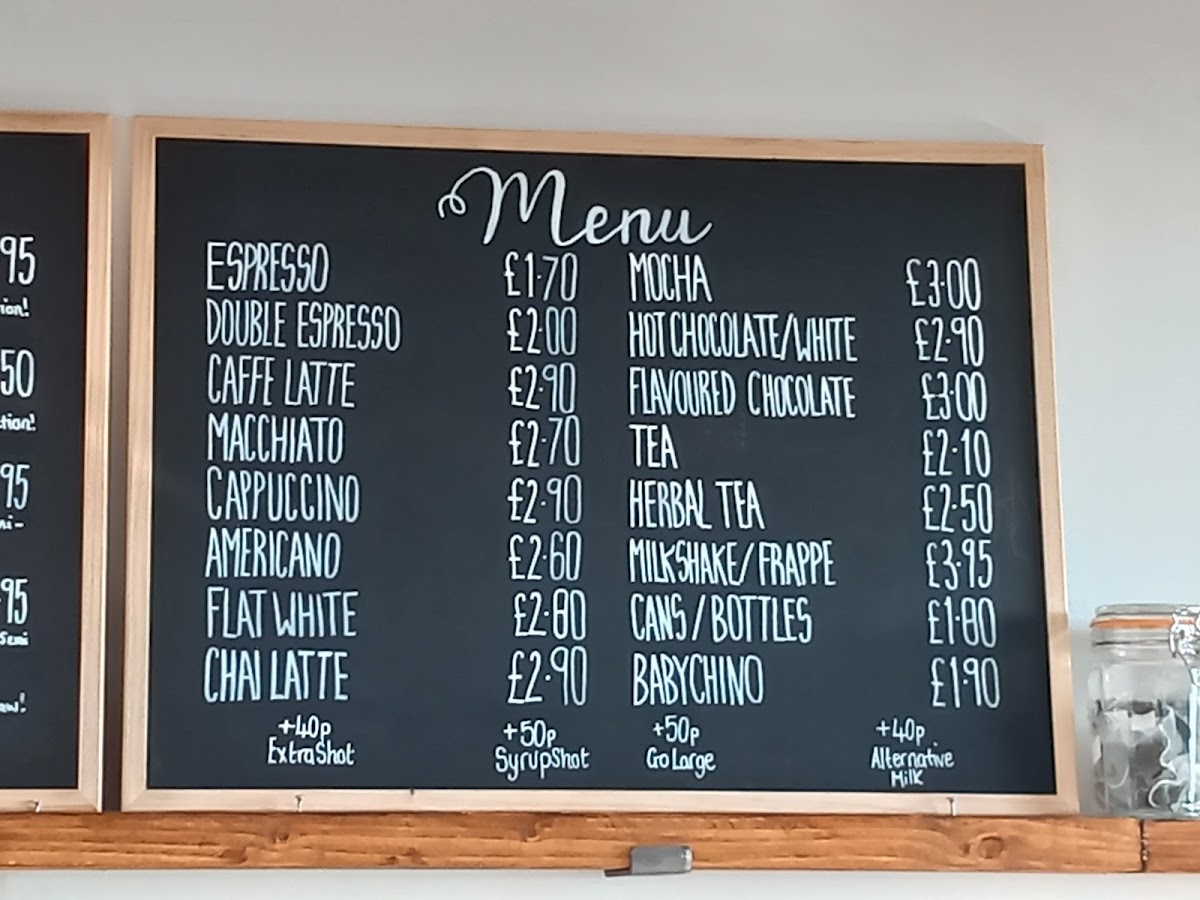 95
ion!
50
tion!
95
ni-
95
Semi
aw!
Menu
ESPRESSO £1.70
DOUBLE ESPRESSO £2.00
CAFFE LATTE £2.90
MACCHIATO £2.70
CAPPUCCINO £2.90
AMERICANO £2.60
FLAT WHITE £2.80
CHAI LATTE £2.90
MOCHA £3.00
HOT CHOCOLATE/WHITE £2.90
FLAVOURED CHOCOLATE £3.00
TEA £2.10
HERBAL TEA £2.50
MILKSHAKE/FRAPPE £3.95
CANS/BOTTLES £1.80
BABYCHINO £1.90
+40p
Extra Shot
+50p
Syrup Shot
+50p
Go Large
+40p
Alternative
Milk